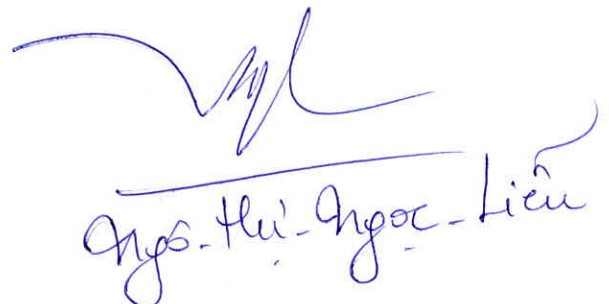 Ngô-Thị-Ngọc-Liễu